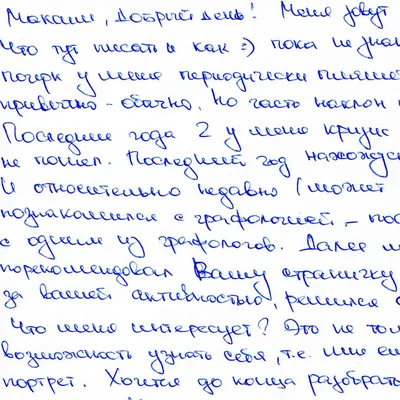 Максим, Добрый день! Меня зовут
Что тут писать и как :) пока не знаю
почерк у меня периодически пляшет
привычно - обычно. Но часть наклон
Последние года 2 у меня кризис
не пошел. Последний год нахожус
И относительно недавно (может
познакомился с графологией - пос
с одним из графологов. Далее м
порекомендовал Вашу страничку
за вашей активностью, решился
Что меня интересует? Это не тол
возможность узнать себя, т.е. мне
портрет. Хочется до конца разобрать